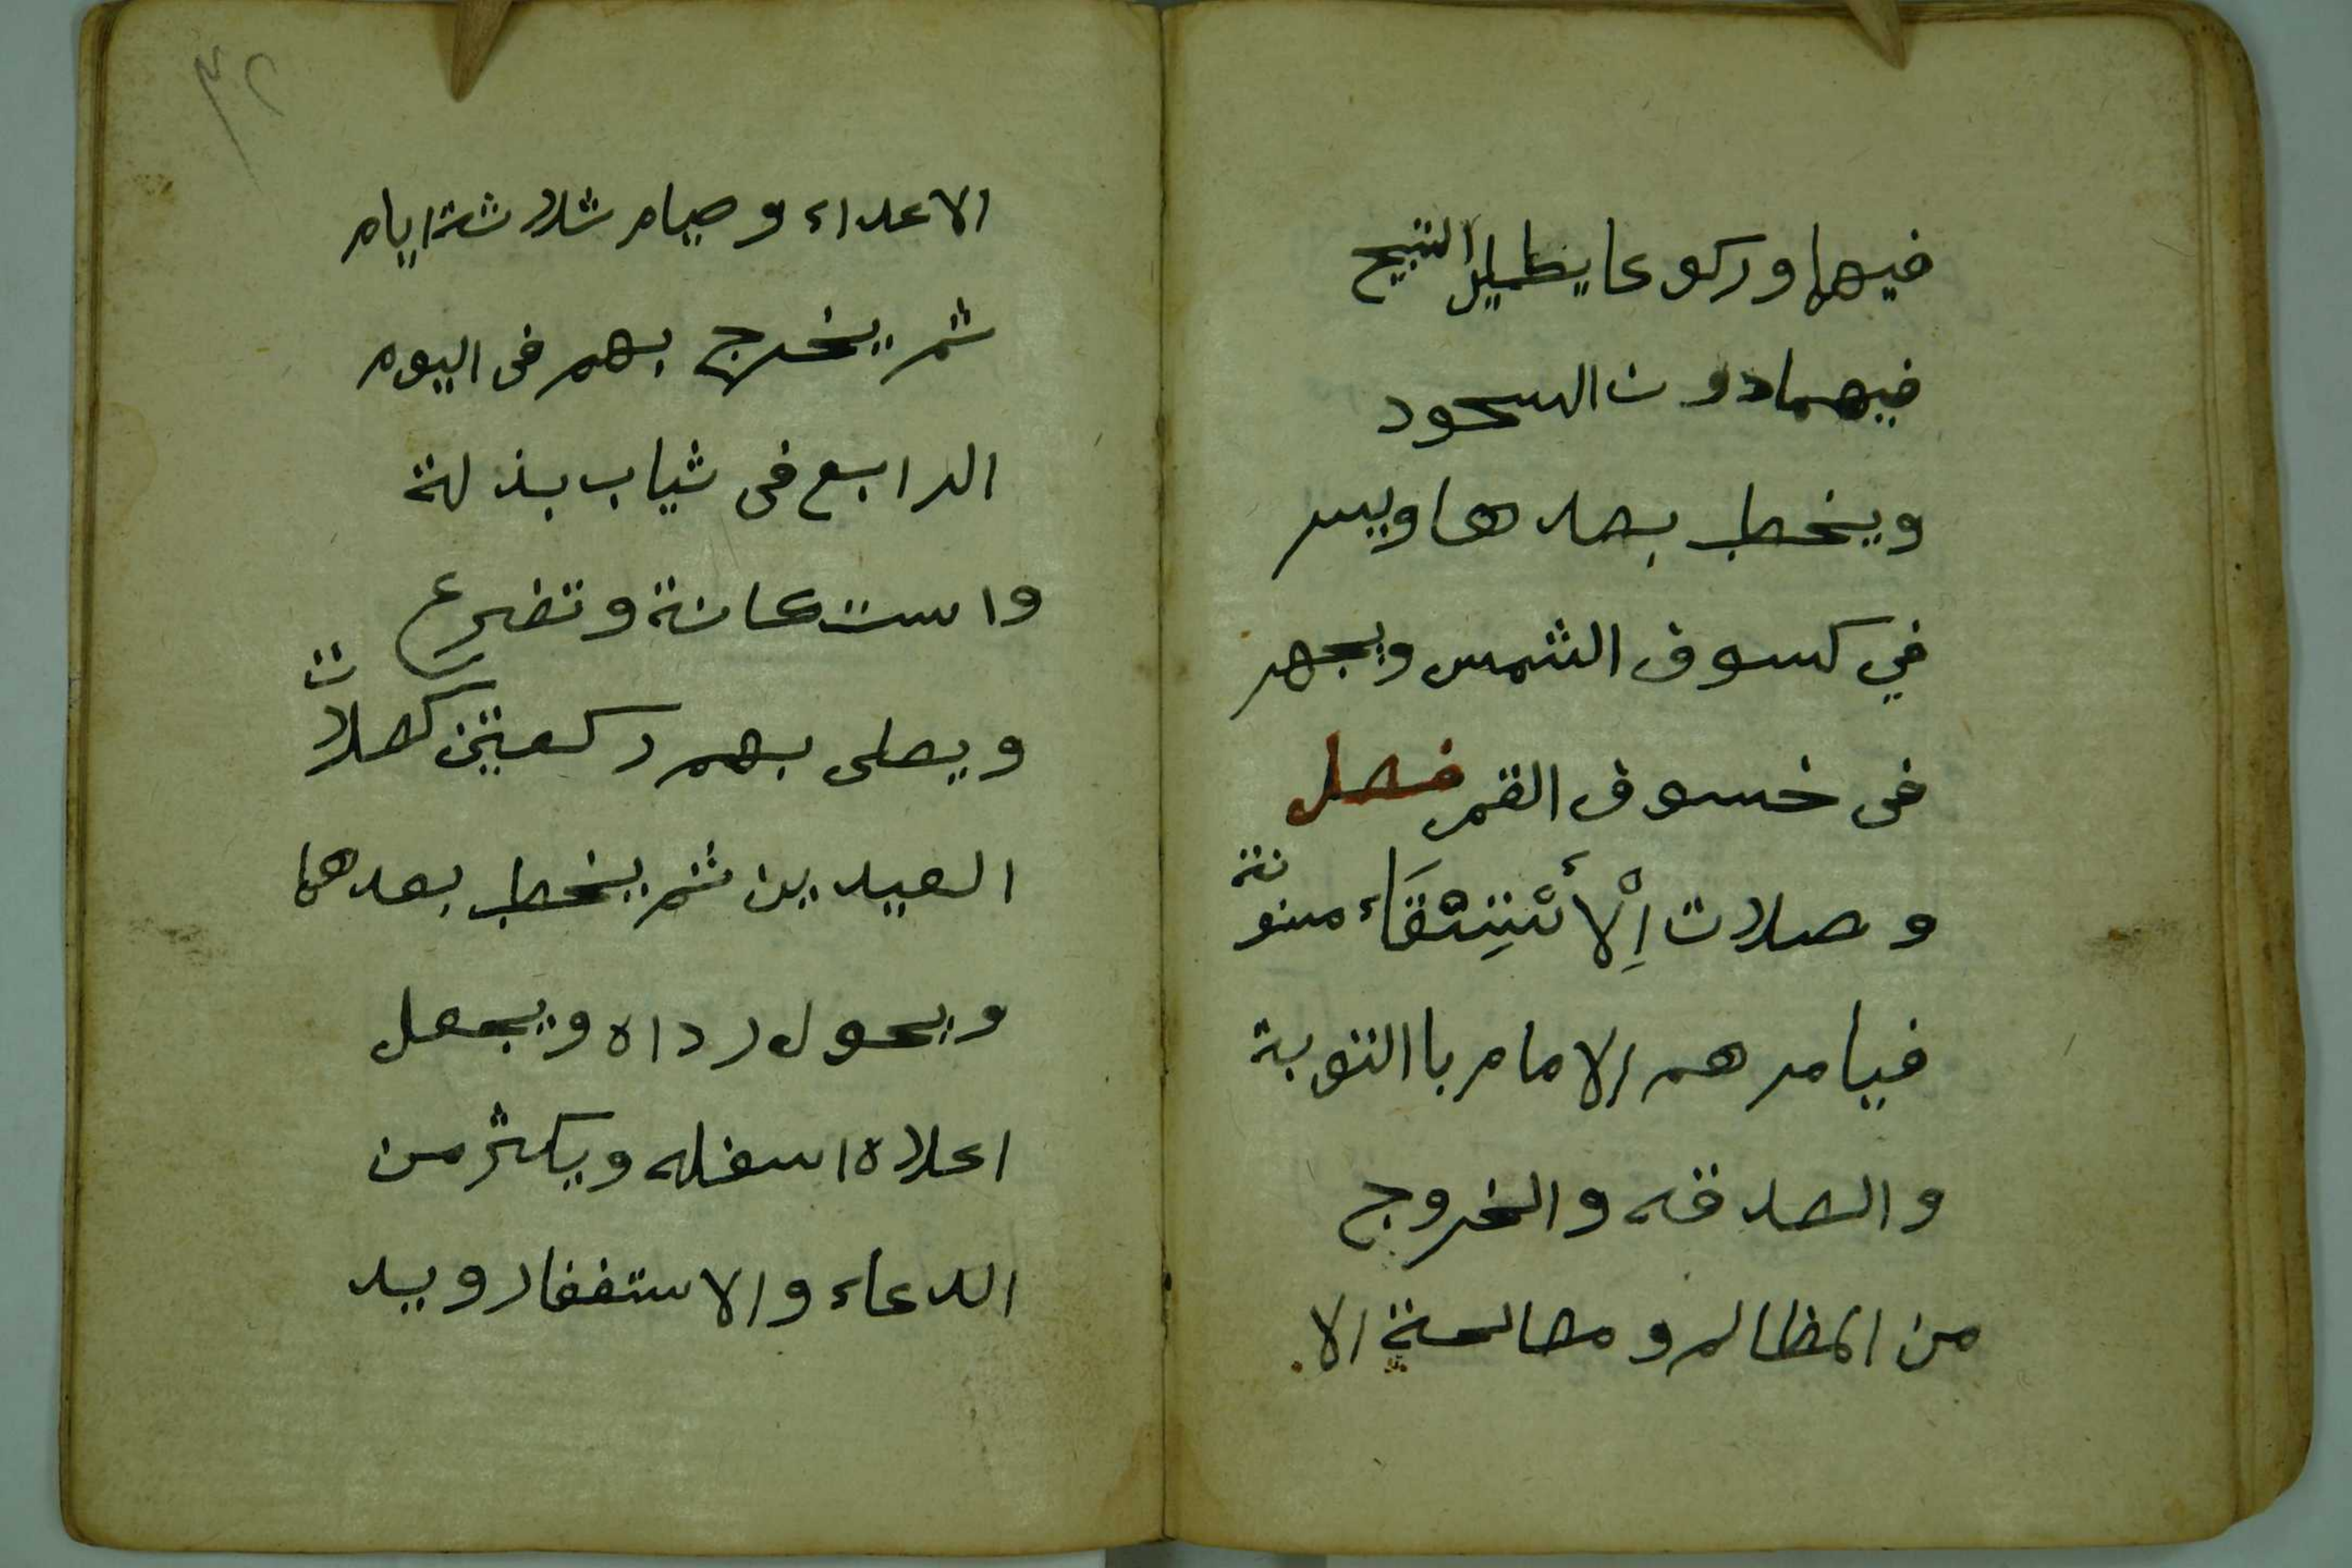 فيهما وركوعا يطيل التبيح
فيهما دون السجود
ويخطب بعدها ويسر
في كسوف الشمس ويجهر
فى خسوف القمر فصل
وصلات اِلْأَسْتِسْقَاء مسنونة
فيامرهم الامام باالتوبة
والصدقه والخروج
من المظالم ومصالحة الا
٣٢
الاعداء وصيام ثلاثة ايام
ثم يخرج بهم فى اليوم
الرابع فى ثياب بذلة
واستكانة وتضرع
ويصلى بهم ركعتين كصلات
العيدين ثم يخطب بعدهما
ويحول رداه ويجعل
اعلاه اسفله ويكثر من
الدعاء والاستغفار ويد